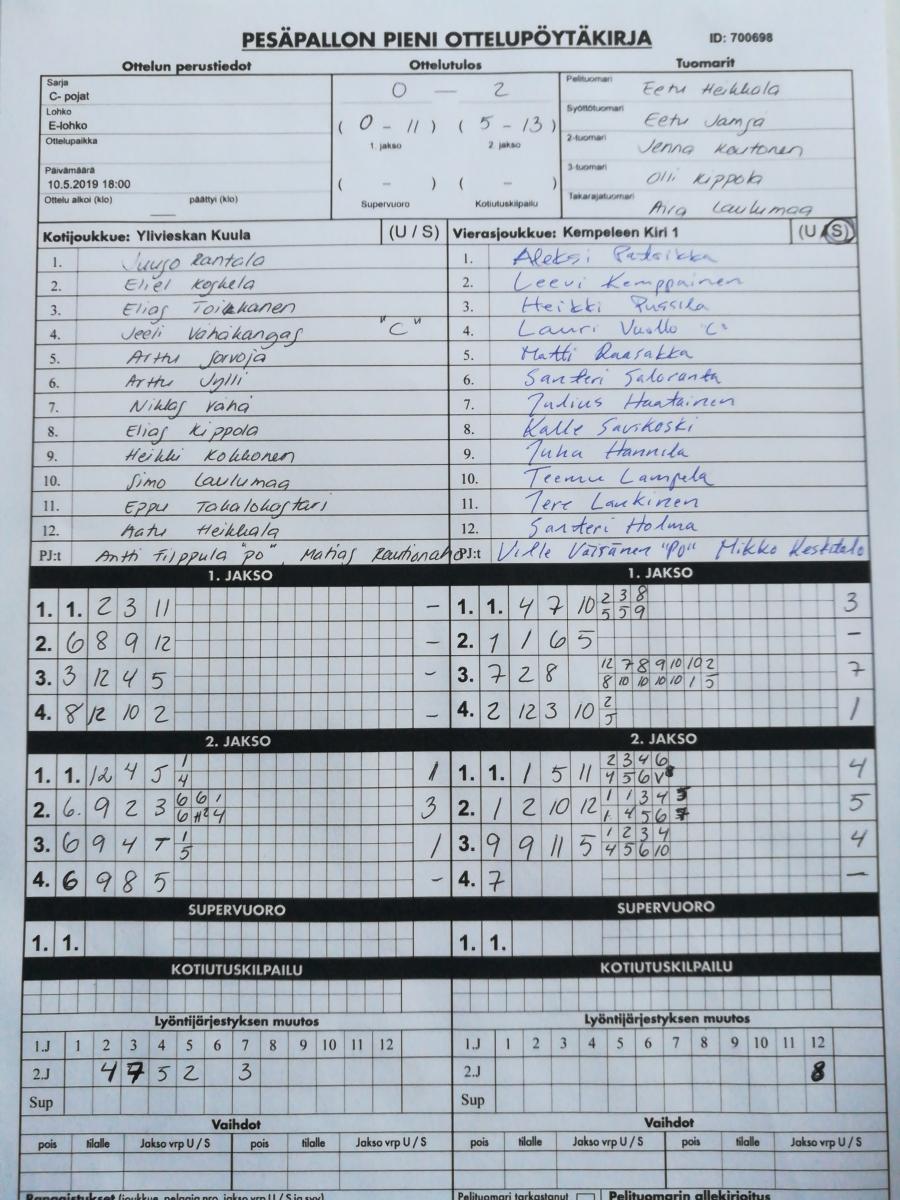 PESÄPALLON PIENI OTTELUPÖYTÄKIRJA ID: 700698
Ottelun perustiedot Ottelutulos Tuomarit
Sarja
C- pojat
Lohko
E-lohko
Ottelupaikka
Päivämäärä
10.5.2019 18:00
Ottelu alkoi (klo) päättyi (klo)
0 — 2
( 0 - 11 ) ( 5 - 13 )
1. jakso 2. jakso
( - ) ( - )
Supervuoro Kotiutuskilpailu
Pelituomari Eetu Heikkala
Syöttötuomari Eetu
2-tuomari Jenna Kautonen
3-tuomari Olli Kippola
Takarajatuomari Aira Laulumaa
Kotijoukkue: Ylivieskan Kuula (U / S)
1. Juuso Rantala
2. Eliel Koskela
3. Elias Toikkanen
4. Jeeli Vähäkangas "C"
5. Arttu Jorvoja
6. Arttu Jylli
7. Niklas Vähä
8. Elias Kippola
9. Heikki Kokkonen
10. Simo Laulumaa
11. Eppu
12. Aatu Heikkala
PJ:t Antti Filppula "PO", Matias
Vierasjoukkue: Kempeleen Kiri 1 (U / S)
1. Aleksi
2. Leevi Kemppainen
3. Heikki
4. Lauri Vuollo "C"
5. Matti Raasakka
6. Santeri Saloranta
7. Julius Haatainen
8. Kalle Savikoski
9. Juha Hannila
10. Teemu Lampela
11. Tere Laukinen
12. Santeri Holma
PJ:t Ville Väisänen "PO" Mikko Keskitalo
1. JAKSO
1. 1. 2 3 11 –
2. 6 8 9 12 –
3. 3 12 4 5 –
4. 8 12 10 2 –
1. JAKSO
2 3 8
1. 1. 4 7 10 3
5 5 9
2. 1 1 6 5 –
12 7 8 9 10 10 2
3. 7 2 8 7
8 10 10 10 10 1 5
2
4. 2 12 3 10 1
5
2. JAKSO
1
1. 1. 12 4 5 1
4
6 6 1
2. 6. 9 2 3 3
6 4
1
3. 6 9 4 T 1
5
4. 6 9 8 5 –
2. JAKSO
2 3 4 6
1. 1. 1 5 11 4
4 5 6 V
1 1 3 4 5
2. 1 2 10 12 5
1 4 5 6 7
1 2 3 4
3. 9 9 11 5 4
4 5 6 10
4. 7 –
SUPERVUORO
1. 1.
SUPERVUORO
1. 1.
KOTIUTUSKILPAILU
KOTIUTUSKILPAILU
Lyöntijärjestyksen muutos
1.J 1 2 3 4 5 6 7 8 9 10 11 12
2.J 4 7 5 2 3
Sup
Lyöntijärjestyksen muutos
1.J 1 2 3 4 5 6 7 8 9 10 11 12
2.J 8
Sup
Vaihdot
pois tilalle Jakso vrp U / S pois tilalle Jakso vrp U / S
Vaihdot
pois tilalle Jakso vrp U / S pois tilalle Jakso vrp U / S
Rangaistukset (joukkue, pelaaja nro, jakso vrp U / S ja syy)
Pelituomari tarkastanut Pelituomarin allekirjoitus